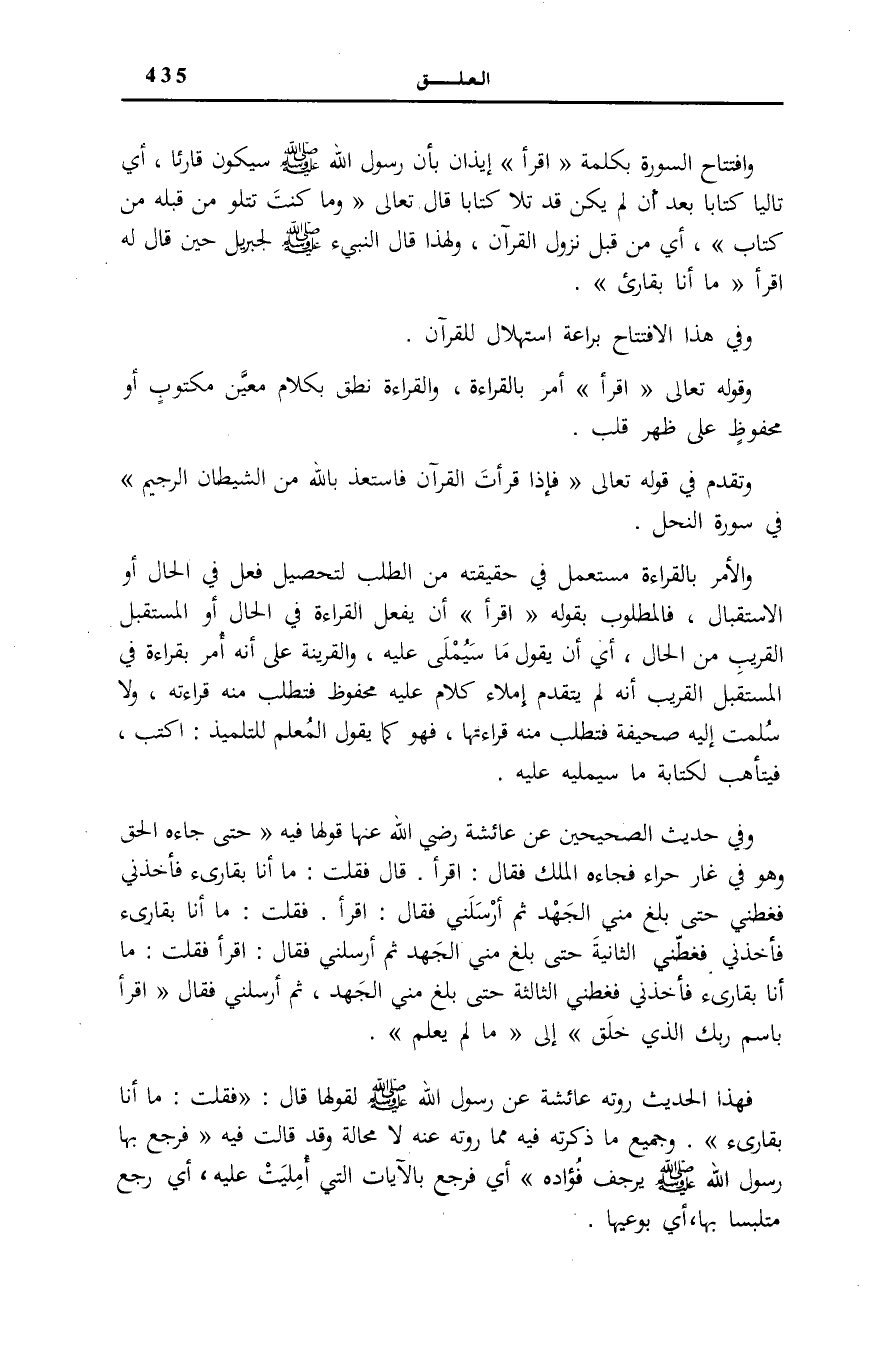 العلـــق 435
وافتتاح السورة بكلمة « اقرأ » إيذان بأن رسول الله ﷺ سيكون قارئا ، أي
تاليا كتابا بعد أن لم يكن قد تلا كتابا قال تعالى « وما كنتَ تتلو من قبله من
كتاب » ، أي من قبل نزول القرآن ، ولهذا قال النبيء ﷺ لجبريل حين قال له
اقرأ « ما أنا بقارئ » .
وفي هذا الافتتاح براعة استهلال للقرآن .
وقوله تعالى « اقرأ » أمر بالقراءة ، والقراءة نطق بكلام معيَّن مكتوبٍ أو
محفوظٍ على ظهر قلب .
وتقدم في قوله تعالى « فإذا قرأتَ القرآن فاستعذ بالله من الشيطان الرجيم »
في سورة النحل .
والأمر بالقراءة مستعمل في حقيقته من الطلب لتحصيل فعل في الحال أو
الاستقبال ، فالمطلوب بقوله « اقرأ » أن يفعل القراءة في الحال أو المستقبل
القريبِ من الحال ، أي أن يقول مَا سَيُمْلَى عليه ، والقرينة على أنه أُمر بقراءة في
المستقبل القريب أنه لم يتقدم إملاء كلام عليه محفوظ فتطلب منه قراءته ، ولا
سُلمت إليه صحيفة فتطلب منه قراءتها ، فهو كما يقول المُعلم للتلميذ : اكتب ،
فيتأهب لكتابة ما سيمليه عليه .
وفي حديث الصحيحين عن عائشة رضي الله عنها قولها فيه « حتى جاءه الحق
وهو في غار حراء فجاءه الملك فقال : اقرأ . قال فقلت : ما أنا بقارىء فأخذني
فغطني حتى بلغ مني الجَهْد ثم أرْسَلَني فقال : اقرأ . فقلت : ما أنا بقارىء
فأخذني فغطّني الثانيةَ حتى بلغ مني الجَهد ثم أرسلني فقال : اقرأ فقلت : ما
أنا بقارىء فأخذني فغطني الثالثة حتى بلغ مني الجَهد ، ثم أرسلني فقال « اقرأ
باسم ربك الذي خلَق » إلى « ما لم يعلم » .
فهذا الحديث روته عائشة عن رسول الله ﷺ لقولها قال : «فقلت : ما أنا
بقارىء » . وجميع ما ذكرته فيه مما روته عنه لا محالة وقد قالت فيه « فرجع بها
رسول الله ﷺ يرجف فُؤاده » أي فرجع بالآيات التي أُمليَتْ عليه ، أي رجع
متلبسا بها،أي بوعيها .